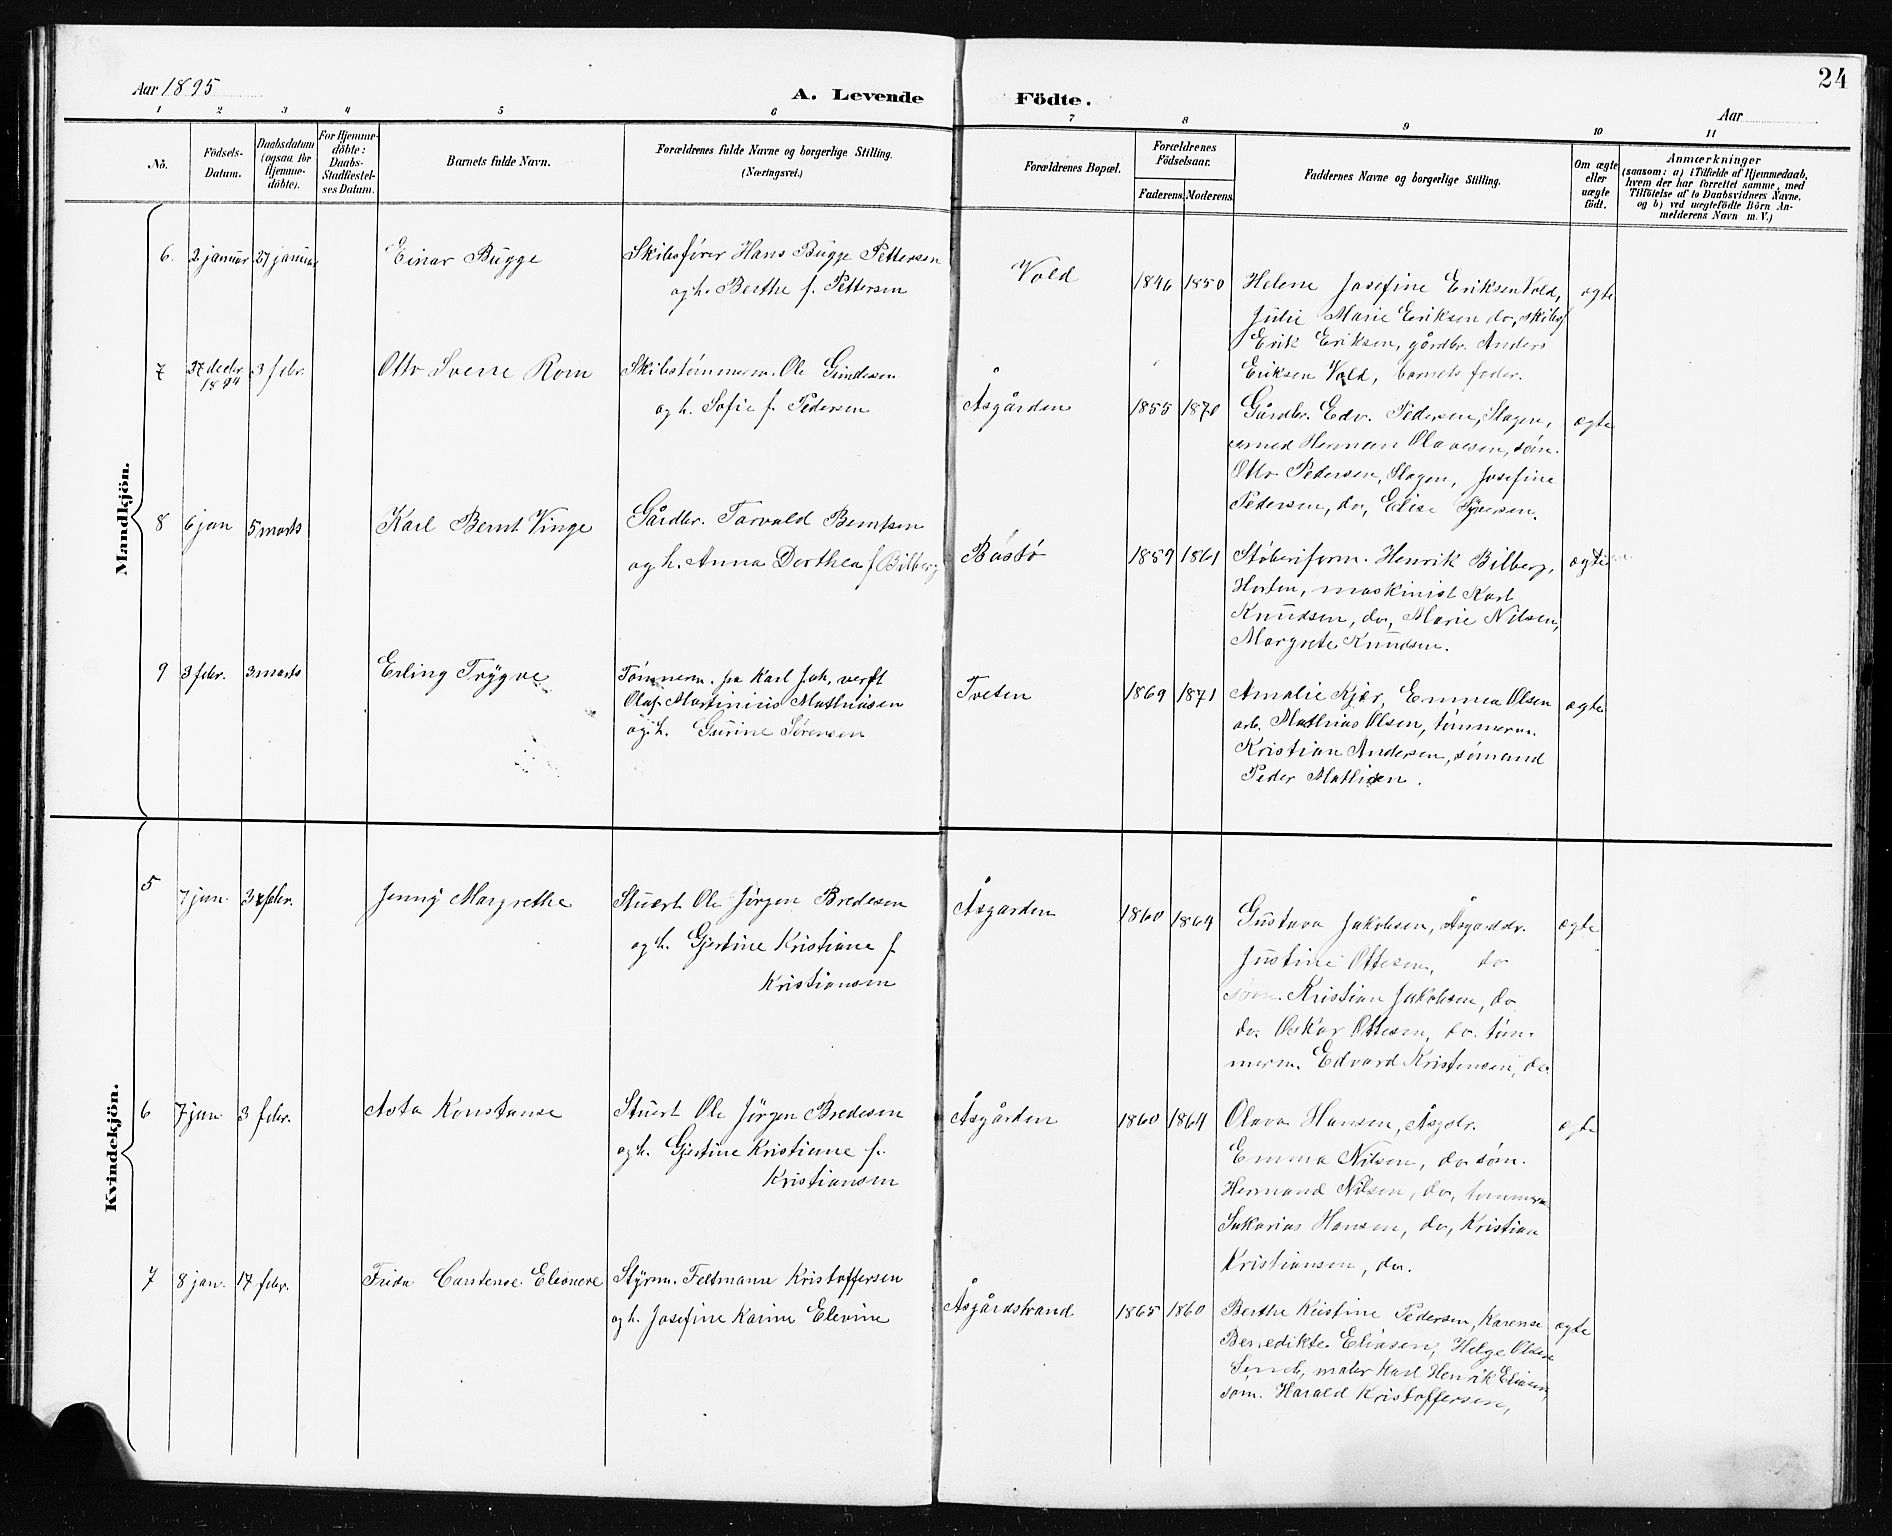 24
Aar 1895
A. Levende Födte.
Aar
1 2 3 4 5 6 7 8 9 10 11
No.
Födsels-Datum.
Daabsdatum (ogsaa for Hjemme-döbte).
For Hjemme-döbte: Daabs-Stadfæstel-ses Datum.
Barnets fulde Navn.
Forældrenes fulde Navne og borgerlige Stilling.
(Næringsvei.)
Forældrenes Bopæl.
Forældrenes Födselsaar.
Faderens. Moderens.
Faddernes Navne og borgerlige Stilling.
Om ægte eller uægte födt.
Anmærkninger
(saasom: a) i Tilfælde af Hjemmedaab,
hvem der har forrettet samme, med
Tilföielse af to Daabsvidners Navne.
og b) ved uægtefödte Börn An-
melderens Navn m. V.)
Mandkjön.
6. 2 januar 27 januar Einar Bugge
Skibsfører Hans Bugge Pettersen
og h. Berthe f. Pettersen
Vold 1846 1850
Helene Josefine Eriksen Vold,
Julie Marie Eriksen do, skibsf
Erik Eriksen, gårdbr. Anders
Eriksen Vold, barnets fader.
ægte
7 27 decbr 1894 3 febr. Otto Sverre Rom
Skibstømmerm. Ole Gundesen
og h. Sofie f. Pedersen
Åsgården 1855 1870
Gårdbr. Edv. Pedersen, Slagen,
Herman Olavesen, søm.
Otto Pedersen, Slagen, Josefine
Pedersen, do, Elise Syversen.
ægte
8 6 jan 5 marts Karl Bernt Vinge
Gårdbr. Torvald Berntsen
og h. Anna Dorthea f Bilberg
Bastø 1859 1861
Støberiform. Henrik Bilberg,
Horten, maskinist Karl
Knudsen, do, Marie Nilsen,
Margrete Knudsen.
ægte
9 3 febr. 3 marts Erling Trygve
Tømmerm. pa Karl Joh, verft
Olaf Martinius Mathiasen
og h. Gurine Sørensen
Tveten 1869 1871
Amalie Kjær, Emma Olsen
arb. Mathias Olsen, tømmerm.
Kristian Andersen, sømand
Peder Mathisen.
ægte
Kvindekjön.
5 7 jan. 3 febr. Jenny Margrethe
Stuert Ole Jørgen Bredesen
og h. Gjertine Kristiane f
Kristiansen
Åsgarden 1860 1864
Gustava Jakobsen, Åsgardstr.
Justine Ottesen, do
søm. Kristian Jakobsen, do
do. Oskar Ottesen, do. tøm-
merm. Edvard Kristensen, do
ægte
6 7 jan. 3 febr. Asta Konstanse
Stuert Ole Jørgen Bredesen
og h. Gjertine Kristiane f.
Kristiansen
Åsgården 1860 1864
Olava Hansen, Åsgdr.
Emma Nilsen, do søm.
Hermand Nilsen, do, tømmerm
Sakarias Hansen, do, Kristian
Kristiansen, do.
ægte
7 8 jan. 17 febr. Frida Constense Eleonere
Styrm. Feltmann Kristoffersen
og h. Josefine Karine Elevine
Åsgårdstrand 1865 1860
Berthe Kristine Pedersen, Karense
Benedikte Eliasen, Helge Olsen
maler Karl Henrik Eliasen,
søm. Harald Kristoffersen,
ægte